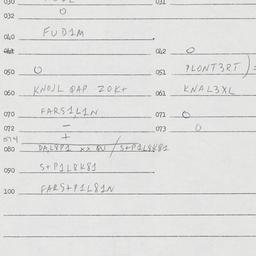 032 O
040 FUD1M
042 O
050 O 051 PLONT3RT)
060 KNOJL QAP ZOK+ 061 KNAL3XL
070 FARS1L1N 071 O
072 - 073 O
074 +
080 DAL8P1 xx QU / S+P1L8K81
090 S+P1L8K81
100 FARS+P1L81N